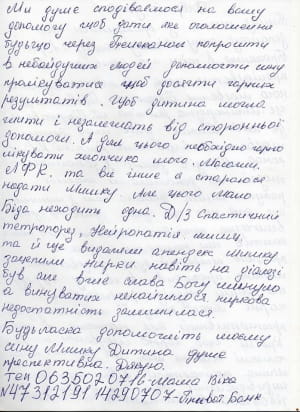 Ми дуже сподіваємося на вашу
допомогу щоб дати як оголошення
будьщо через Телеканал попросити
в небайдужих людей допомогти сину
пролікуватися щоб досягти гарних
результатів. Щоб дитина могла
жити і незалежать від сторонньої
допомоги. А для цього необхідно гарно
лікувати хлопчика мого. Масажі.
ЛФК. та все інше я стараюся
надати Мишку. Але цього мало
Біда неходить одна. Д/З Спастичний
тетропарез, Нейропатія
та й ще видалили апендек Мишку
зачепили нирки навіть на діалізі
був але вже слава Богу минуло
а винуватих ненайшлося ниркова
недостатність залишилася.
Будьласка допоможіть моєму
сину Мишку Дитина дуже
преспективна. Дякую.
тел 0635020716-Мама Віка
№4731219114890707-Приват Банк